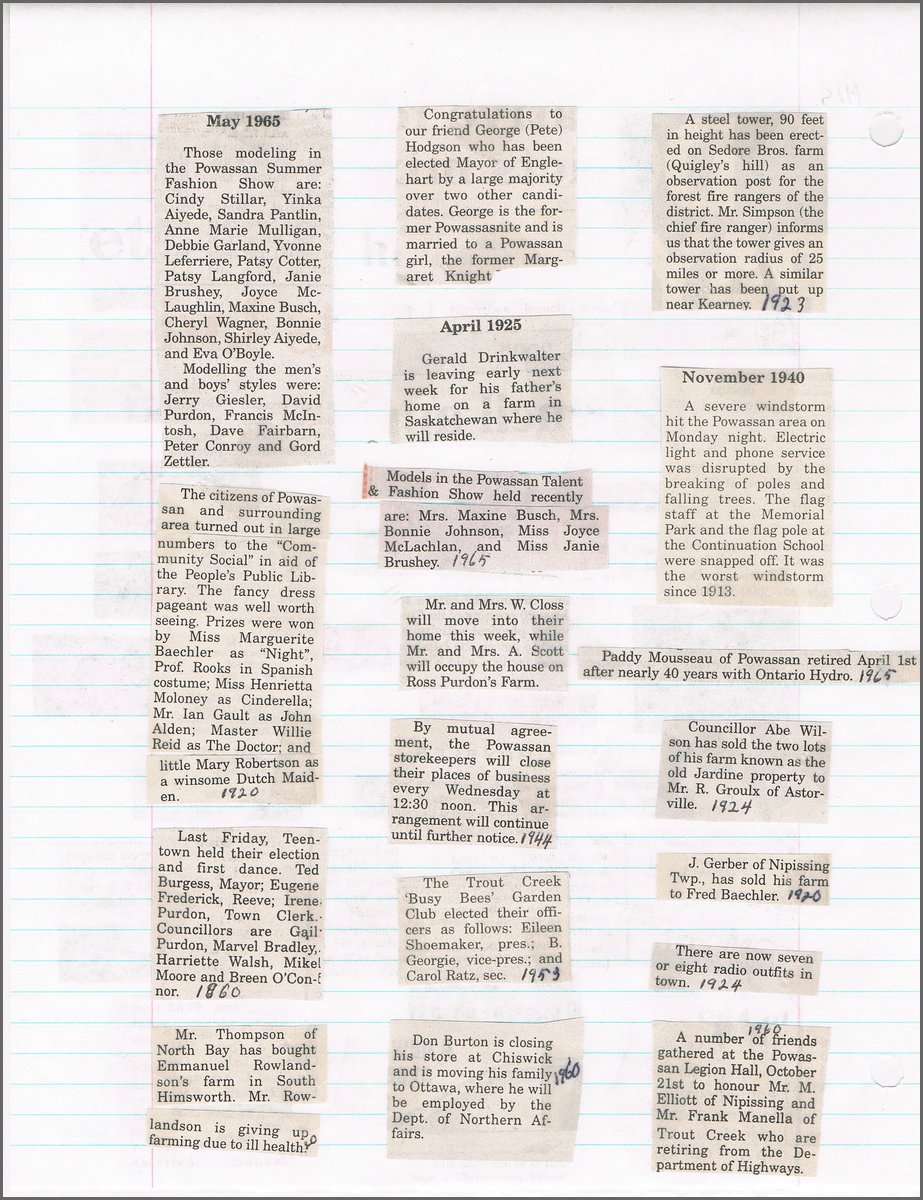 May 1965
Those modeling in
the Powassan Summer
Fashion Show are:
Cindy Stillar, Yinka
Aiyede, Sandra Pantlin,
Anne Marie Mulligan,
Debbie Garland, Yvonne
Leferriere, Patsy Cotter,
Patsy Langford, Janie
Brushey, Joyce Mc-
Laughlin, Maxine Busch,
Cheryl Wagner, Bonnie
Johnson, Shirley Aiyede,
and Eva O'Boyle.
Modelling the men's
and boys' styles were:
Jerry Giesler, David
Purdon, Francis McIn-
tosh, Dave Fairbarn,
Peter Conroy and Gord
Zettler.
The citizens of Powas-
san and surrounding
area turned out in large
numbers to the "Com-
munity Social" in aid of
the People's Public Lib-
rary. The fancy dress
pageant was well worth
seeing. Prizes were won
by Miss Marguerite
Baechler as "Night",
Prof. Rooks in Spanish
costume; Miss Henrietta
Moloney as Cinderella;
Mr. Ian Gault as John
Alden; Master Willie
Reid as The Doctor; and
little Mary Robertson as
a winsome Dutch Maid-
en. 1920
Last Friday, Teen-
town held their election
and first dance. Ted
Burgess, Mayor; Eugene
Frederick, Reeve; Irene
Purdon, Town Clerk.
Councillors are Gail
Purdon, Marvel Bradley,
Harriette Walsh, Mikel
Moore and Breen O'Con-
nor. 1860
Mr. Thompson of
North Bay has bought
Emmanuel Rowland-
son's farm in South
Himsworth. Mr. Row-
landson is giving up
farming due to ill health.
Congratulations to
our friend George (Pete)
Hodgson who has been
elected Mayor of Engle-
hart by a large majority
over two other candi-
dates. George is the for-
mer Powassasnite and is
married to a Powassan
girl, the former Marg-
aret Knight
April 1925
Gerald Drinkwalter
is leaving early next
week for his father's
home on a farm in
Saskatchewan where he
will reside.
Models in the Powassan Talent
& Fashion Show held recently
are: Mrs. Maxine Busch, Mrs.
Bonnie Johnson, Miss Joyce
McLachlan, and Miss Janie
Brushey. 1965
Mr. and Mrs. W. Closs
will move into their
home this week, while
Mr. and Mrs. A. Scott
will occupy the house on
Ross Purdon's Farm.
By mutual agree-
ment, the Powassan
storekeepers will close
their places of business
every Wednesday at
12:30 noon. This ar-
rangement will continue
until further notice. 1944
The Trout Creek
'Busy Bees' Garden
Club elected their offi-
cers as follows: Eileen
Shoemaker, pres.; B.
Georgie, vice-pres.; and
Carol Ratz, sec. 1953
Don Burton is closing
his store at Chiswick
and is moving his family 1960
to Ottawa, where he will
be employed by the
Dept. of Northern Af-
fairs.
A steel tower, 90 feet
in height has been erect-
ed on Sedore Bros. farm
(Quigley's hill) as an
observation post for the
forest fire rangers of the
district. Mr. Simpson (the
chief fire ranger) informs
us that the tower gives an
observation radius of 25
miles or more. A similar
tower has been put up
near Kearney. 1923
November 1940
A severe windstorm
hit the Powassan area on
Monday night. Electric
light and phone service
was disrupted by the
breaking of poles and
falling trees. The flag
staff at the Memorial
Park and the flag pole at
the Continuation School
were snapped off. It was
the worst windstorm
since 1913.
Paddy Mousseau of Powassan retired April 1st
after nearly 40 years with Ontario Hydro. 1965
Councillor Abe Wil-
son has sold the two lots
of his farm known as the
old Jardine property to
Mr. R. Groulx of Astor-
ville. 1924
J. Gerber of Nipissing
Twp., has sold his farm
to Fred Baechler. 1920
There are now seven
or eight radio outfits in
town. 1924
1960
A number of friends
gathered at the Powas-
san Legion Hall, October
21st to honour Mr. M.
Elliott of Nipissing and
Mr. Frank Manella of
Trout Creek who are
retiring from the De-
partment of Highways.